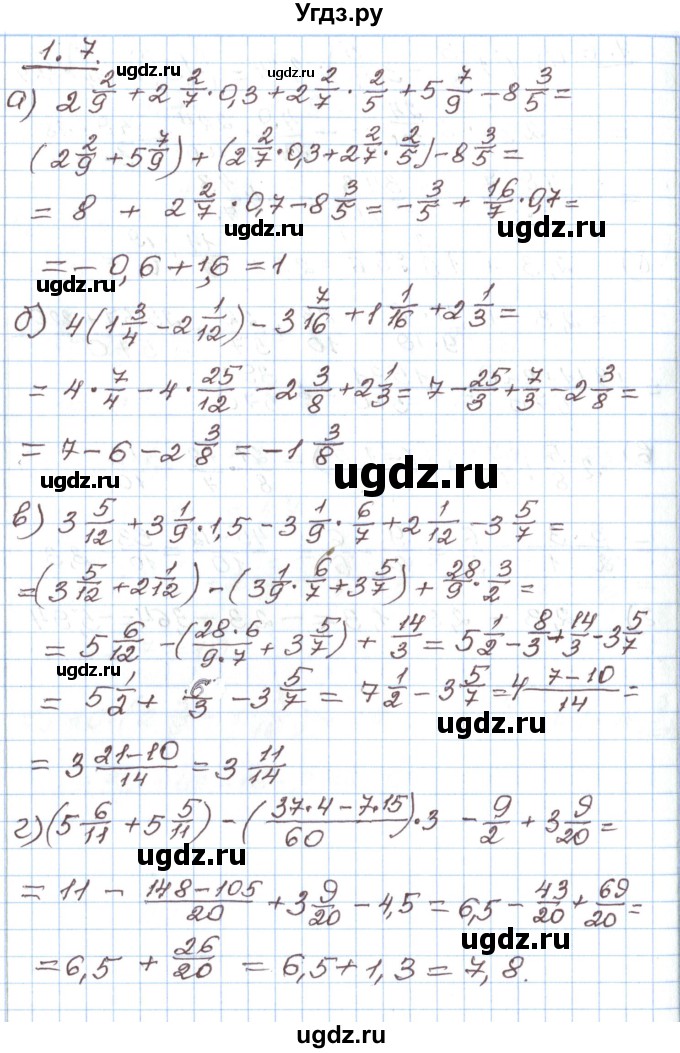 Угдз.ру
1. 7.
ugdz.ru ugdz.ru
а) 2 2/9 + 2 2/7 · 0,3 + 2 2/7 · 2/5 + 5 7/9 − 8 3/5 =
(2 2/9 + 5 7/9) + (2 2/7 · 0,3 + 2 2/7 · 2/5) − 8 3/5 =
= 8 + 2 2/7 · 0,7 − 8 3/5 = − 3/5 + 16/7 · 0,7 =
ugdz.ru
= − 0,6 + 1,6 = 1
ugdz.ru
б) 4(1 3/4 − 2 1/12) − 3 7/16 + 1 1/16 + 2 1/3 =
= 4 · 7/4 − 4 · 25/12 − 2 3/8 + 2 1/3 = 7 − 25/3 + 7/3 − 2 3/8 =
= 7 − 6 − 2 3/8 = − 1 3/8
ugdz.ru ugdz.ru
в) 3 5/12 + 3 1/9 · 1,5 − 3 1/9 · 6/7 + 2 1/12 − 3 5/7 =
= (3 5/12 + 2 1/12) − (3 1/9 · 6/7 + 3 5/7) + 28/9 · 3/2 =
= 5 6/12 − (28·6/9·7 + 3 5/7) + 14/3 = 5 1/2 − 8/3 + 14/3 − 3 5/7
ugdz.ru
= 5 1/2 + 6/3 − 3 5/7 = 7 1/2 − 3 5/7 = 4 7−10/14 =
ugdz.ru
= 3 21−10/14 = 3 11/14
г) (5 6/11 + 5 5/11) − (37·4 − 7·15/60) · 3 − 9/2 + 3 9/20 =
ugdz.ru
= 11 − 148−105/20 + 3 9/20 − 4,5 = 6,5 − 43/20 + 69/20 =
ugdz.ru
= 6,5 + 26/20 = 6,5 + 1,3 = 7,8.
ugdz.ru
ugdz.ru